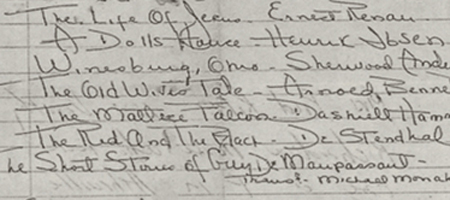 The Life Of Jesus. Ernest Renan.
A Dolls House - Henrik Ibsen
Winesburg, Ohio - Sherwood Ande
The Old Wives Tale - Arnold, Benne
The Maltese Falcon - Dashiell Hamm
The Red And The Black - De Stendhal
he Short Stories of Guy De Maupassant -
Trans. Michael Monah